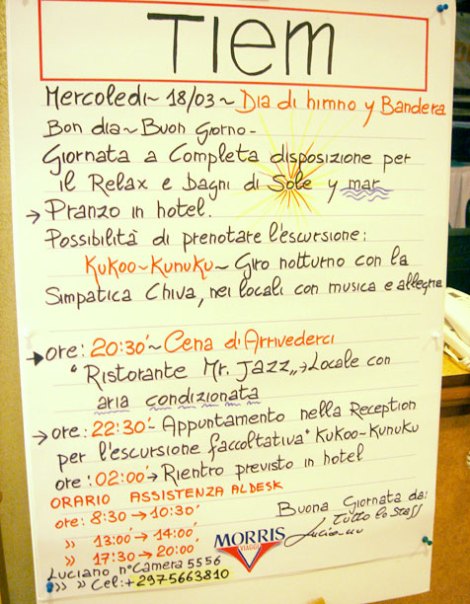 TIEM
Mercoledì~ 18/03 ~ Dia di himno y Bandera
Bon dia~Buon Giorno-
Giornata a Completa disposizione per
il Relax e bagni di Sole y mar
→ Pranzo in hotel.
Possibilità di prenotare l'escursione:
Kukoo~Kunuku~ Giro notturno con la
Simpatica Chiva, nei locali con musica e allegria
→ore: 20:30'~ Cena d'Arrivederci
"Ristorante Mr. Jazz„→Locale con
aria condizionata
→ore: 22:30'- Appuntamento nella Reception
per l'escursione faccoltativa "Kukoo-Kunuku
ore: 02:00'→ Rientro previsto in hotel
ORARIO ASSISTENZA AL DESK
ore: 8:30 → 10:30'
» 13:00' → 14:00'
» 17:30 → 20:00'
Buona Giornata da:
Tutto lo Staff
Luciano
MORRIS
VIAGGI
Luciano n° Camera 5556
» » Cel: + 2975663810